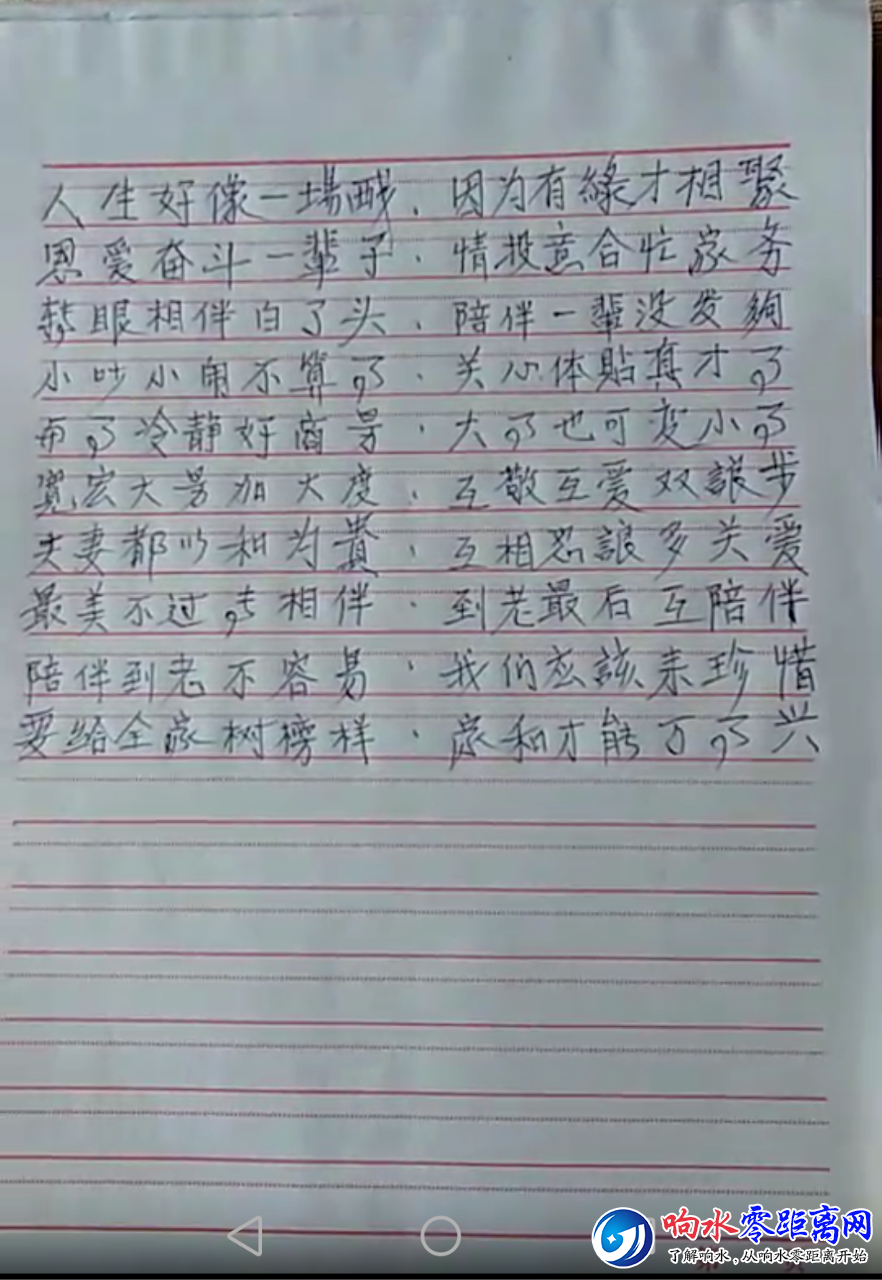 人生好像一場戲，因为有緣才相聚
恩爱奋斗一辈子，情投意合忙家务
转眼相伴白了头，陪伴一辈没发夠
小吵小闹不算了，关心体貼真才了
而了冷静好商号，大了也可变小了
寬宏大号加大度，互敬互爱双讓步
夫妻都以和为貴，互相忍讓多关爱
最美不过相伴，到老最后互陪伴
陪伴到老不容易，我们应該来珍惜
要给全家树榜样，家和才能万了兴
响水零距离网
了解响水，从响水零距离开始